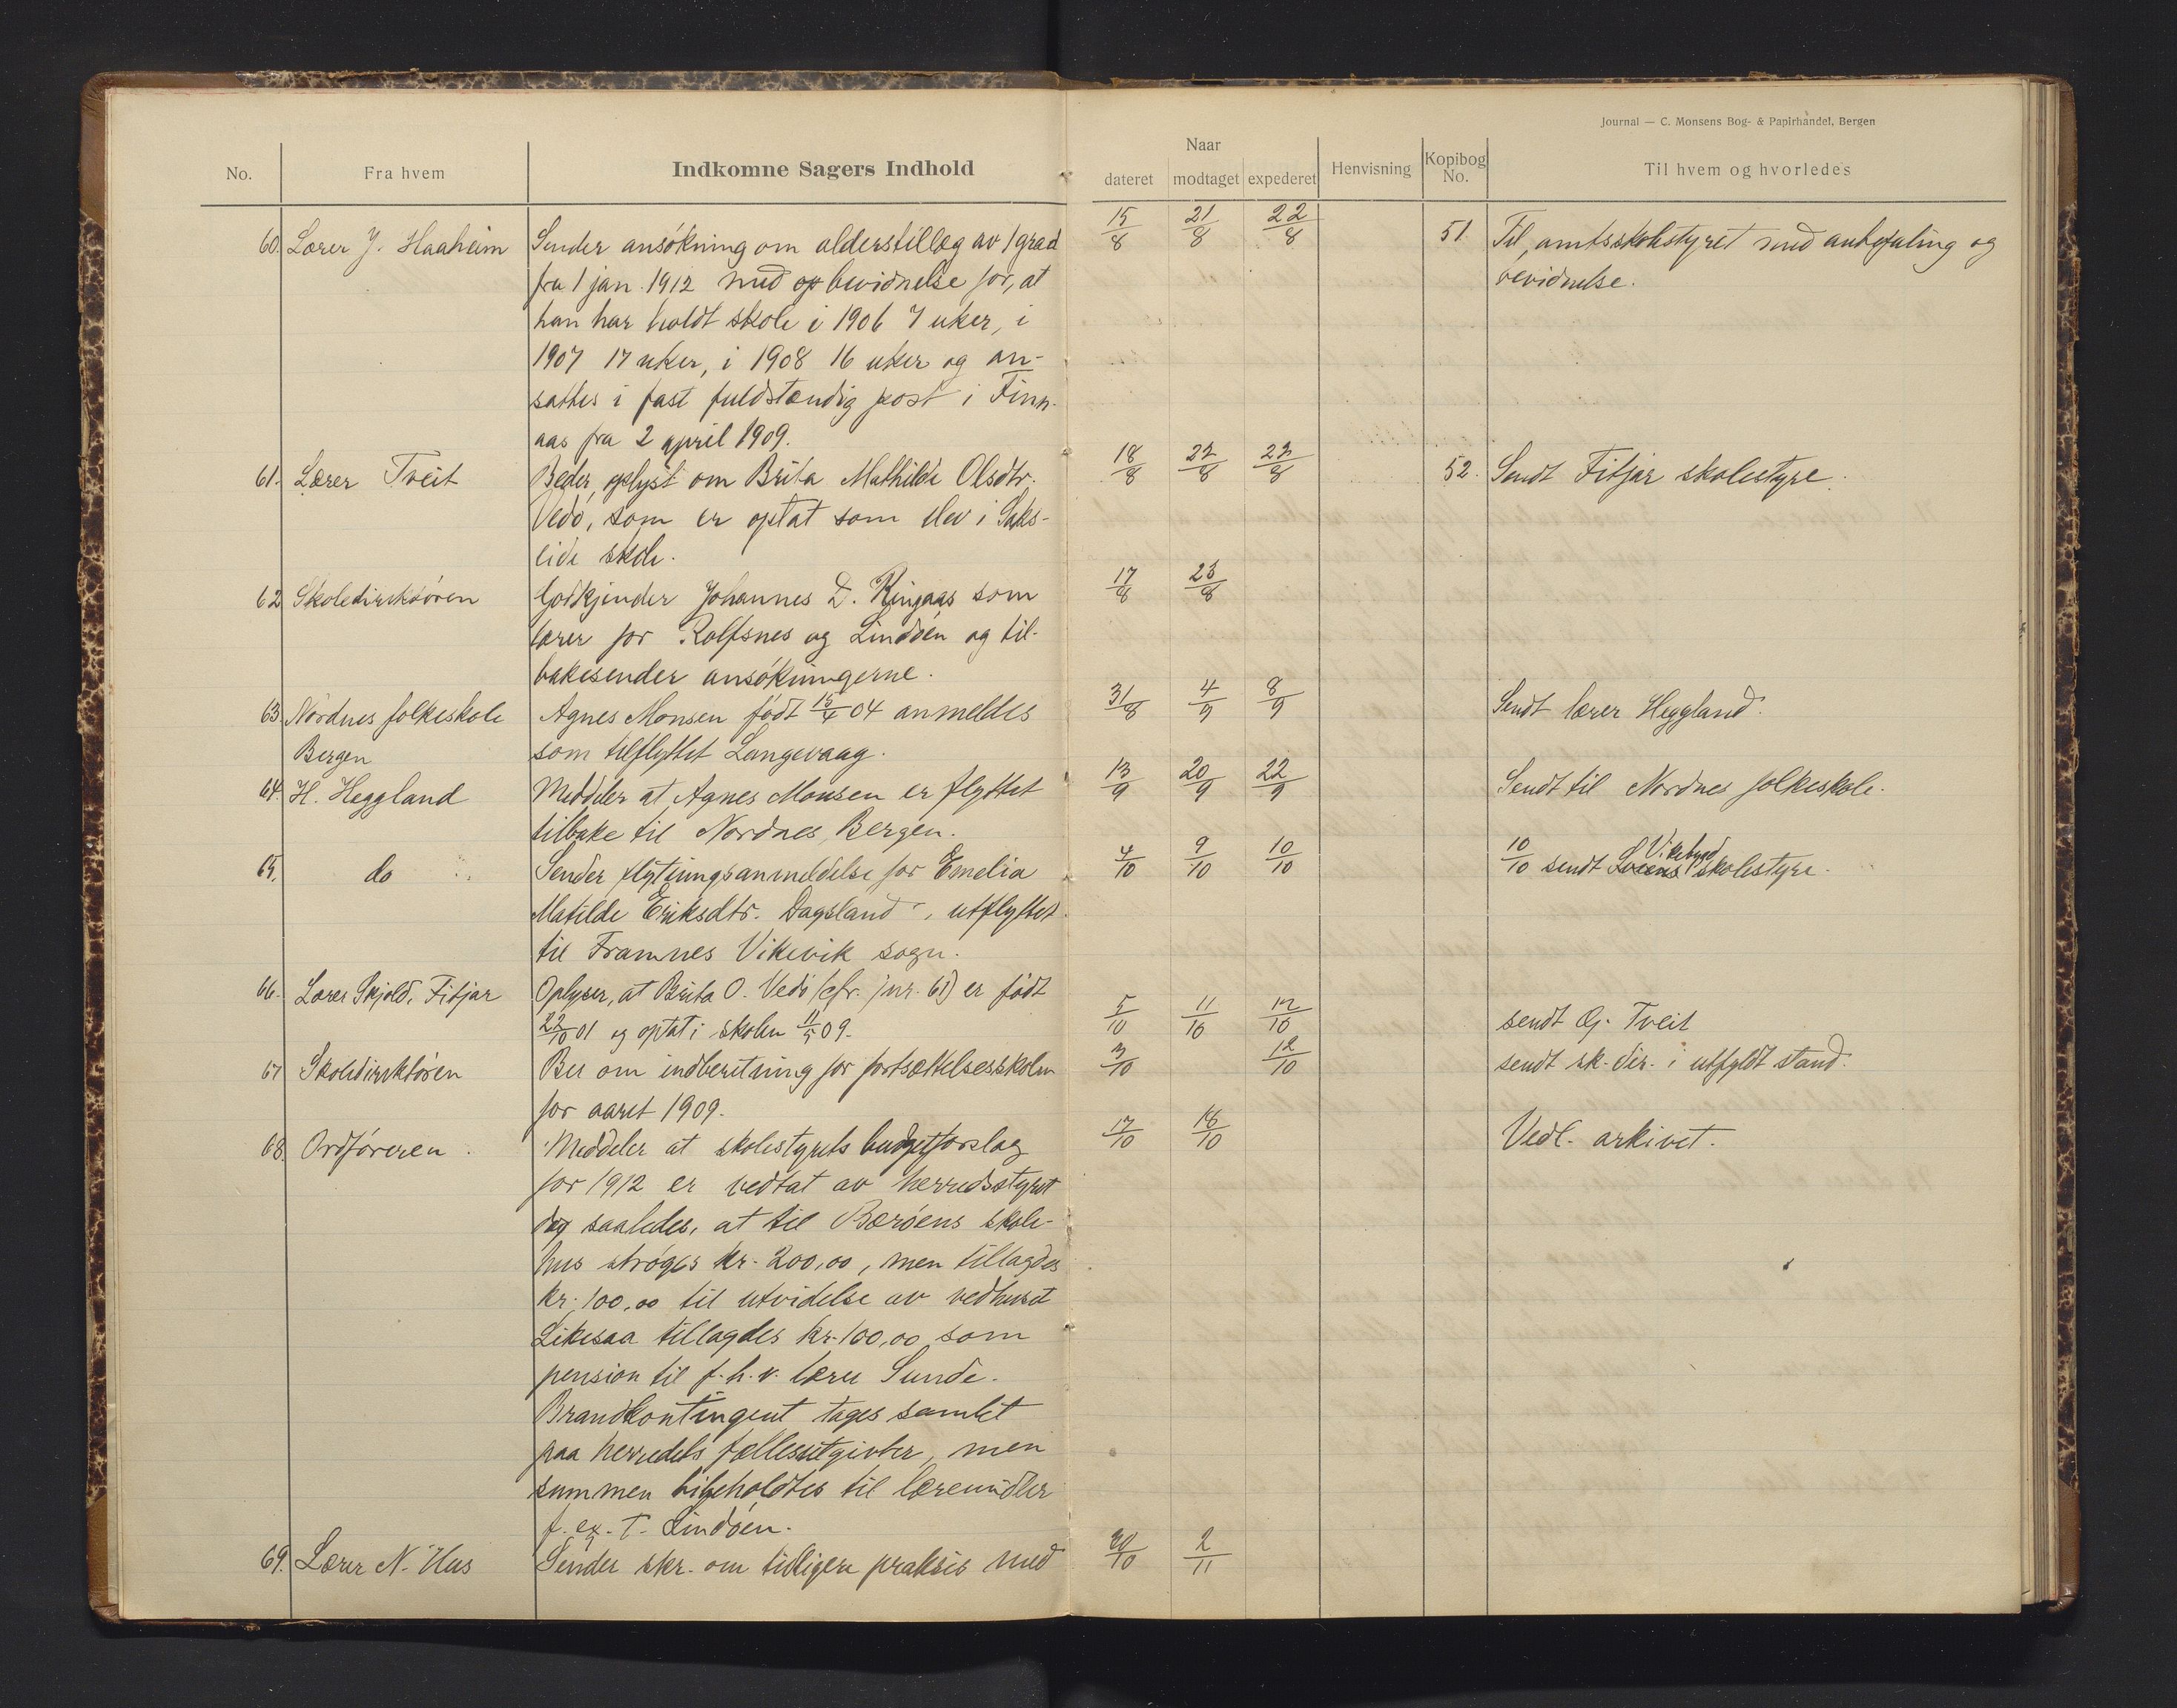 Journal — C. Monsens Bog- & Papirhandel, Bergen
No.
Fra hvem
Indkomne Sagers Indhold
Naar
dateret
modtaget
expederet
Henvisning
Kopibog No.
Til hvem og hvorledes
60. Lærer J. Haaheim Sender ansökning om alderstillæg av 1 grad 15/8 21/8 22/8 51. Til amtsskolestyret med anbefaling og
fra 1 jan. 1912 med op bevidnelse for, at bevidnelse.
han har holdt skole i 1906 7 uker, i
1907 17 uker, i 1908 16 uker og an-
sattes i fast fuldstændig post i Finn-
aas fra 2 april 1909.
61. Lærer Tveit Beder oplyst om Brita Mathilde Olsdtr. 18/8 22/8 23/8 52. Sendt Fitjar skolestyre.
Vedö, som er optat som elev i Saks-
eide skole.
62 Skoledirektören Godkjender Johannes D. Ringaas som 17/8 23/8
lærer for Rolfsnes og Lindöen og til-
bakesender ansökningerne.
63 Nordnes folkeskole Agnes Monsen födt 15/4 04 anmeldes 31/8 4/9 8/9 Sendt lærer Heggland.
Bergen som tilflyttet Langevaag.
64. H. Heggland Meddeler at Agnes Monsen er flyttet 13/9 20/9 22/9 Sendt til Nordnes folkeskole.
tilbake til Nordnes, Bergen.
65. do Sender flytningsanmeldelse for Emelia 4/10 9/10 10/10 10/10 sendt Sveens Vikebygd skolestyre.
Matilde Eriksdtr. Dagsland, utflyttet
til Framnes Vikevik sogn.
66. Lærer Skjold, Fitjar Oplyser, at Brita O. Vedö (cfr. jnr. 61) er födt 5/10 11/10 12/10 sendt O. Tveit
22/10 01 og optat i skolen 11/5 09.
67 Skoledirektören Ber om indberetning for fortsættelsesskolen 3/10 12/10 sendt sk. dir. i utfyldt stand.
for aaret 1909.
68. Ordföreren. Meddeler at skolestyrets budgetforslag 17/10 18/10 Vedl. arkivet.
for 1912 er vedtat av herredsstyret
dog saaledes, at til Bæröens skole-
hus ströges kr. 200,00, men tillagdes
kr. 100,00 til utvidelse av vedhuset
Likesaa tillagdes kr. 100,00 som
pension til f. h. v. lærer Sunde.
Brandkontingent tages samlet
paa herredets fællesutgivter, men
summen bibeholdtes til læremidler
f. ex. t. Lindöen.
69. Lærer N. Hus Sender skr. om tidligere praksis med 30/10 2/11